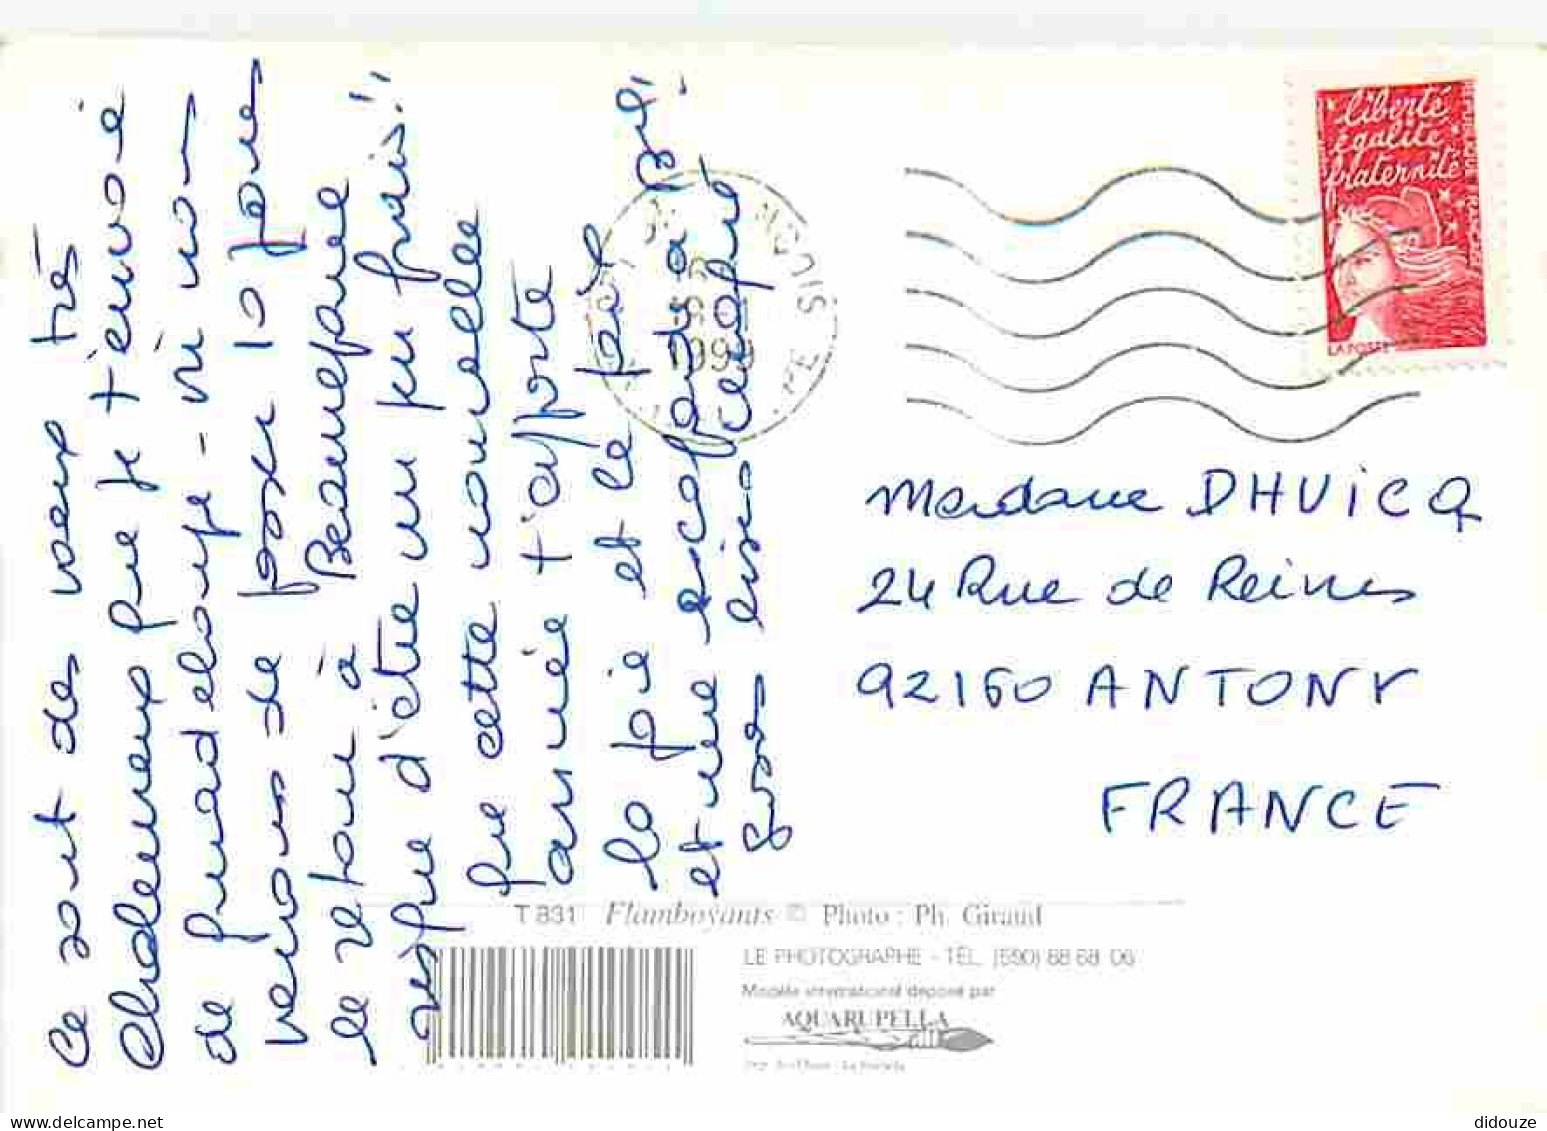 Ce sont des voeux très
chaleureux que je t'envoie
de guadeloupe - où nous
venons de passer 10 jours
le retour à Beaurepaire
risque d'être un peu frais!!
que cette nouvelle
année t'apporte
la joie et la paix
et une escapade à
Gros bisous
Madame DHUICQ
24 Rue de Reims
92160 ANTONY
FRANCE
liberté
égalité
fraternité
RÉPUBLIQUE FRANÇAISE
LA POSTE
1999
T 831 Flamboyants © Photo : Ph. Giraud
LE PHOTOGRAPHE - TÉL. (590) 68 68 06
Modèle international déposé par
AQUARUPELLA
didouze